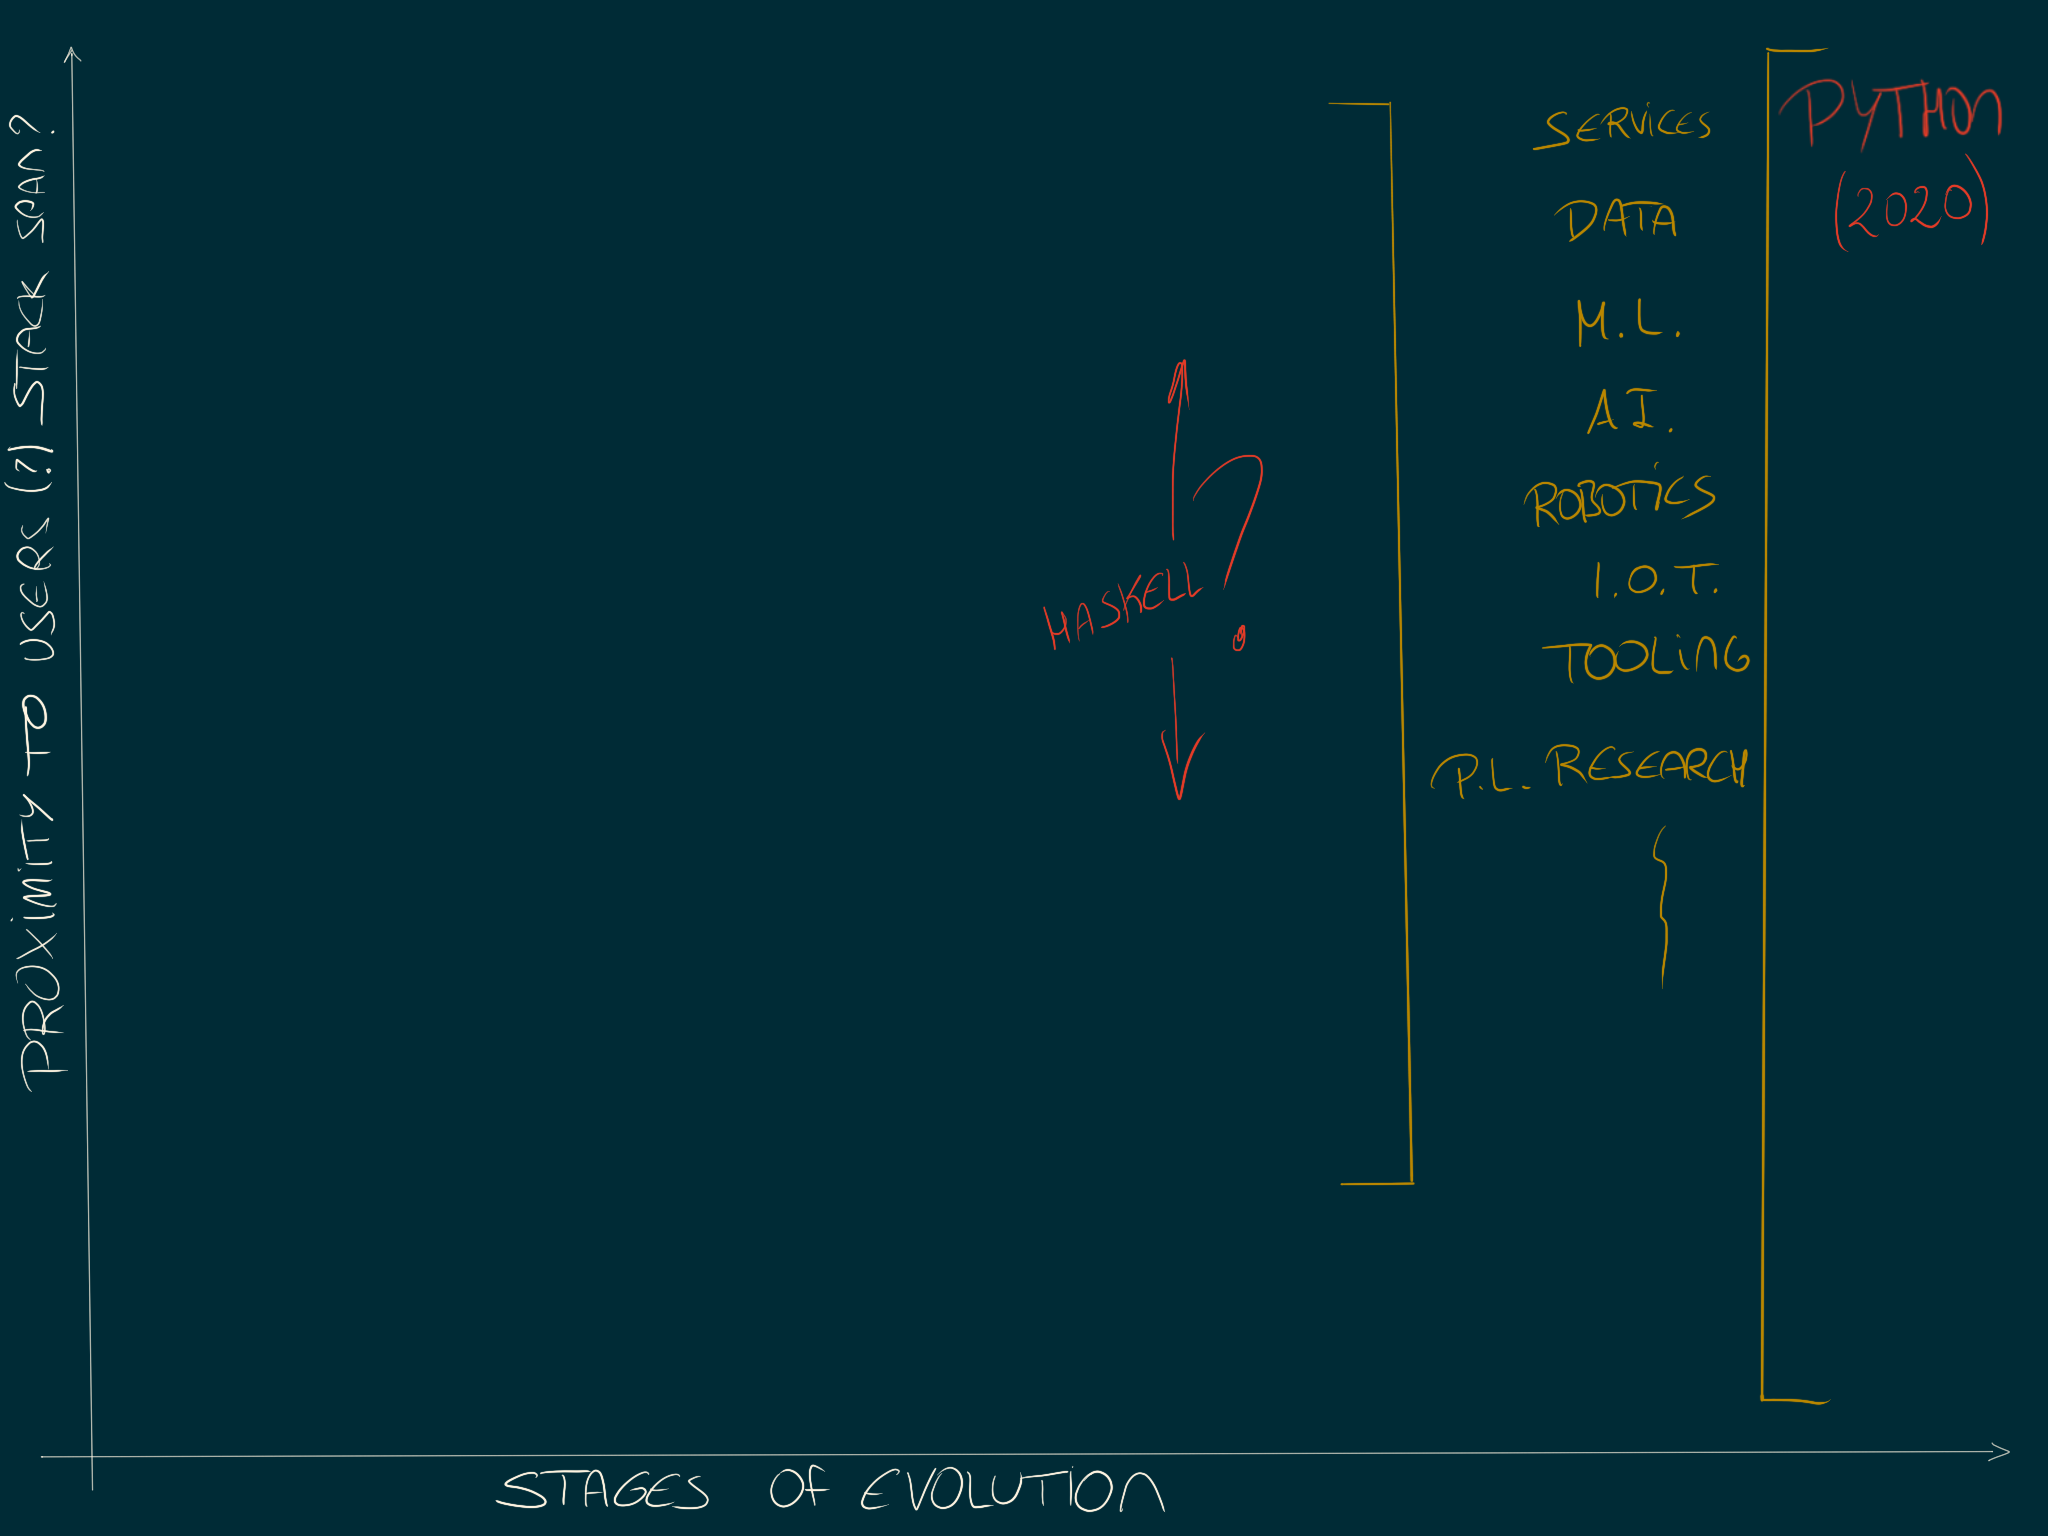 PROXIMITY TO USERS (?) - STACK SPAN?
HASKELL ?
SERVICES
DATA
M.L.
A I.
ROBOTICS
I.O.T.
TOOLING
P.L. RESEARCH
PYTHON
(2020)
STAGES OF EVOLUTION